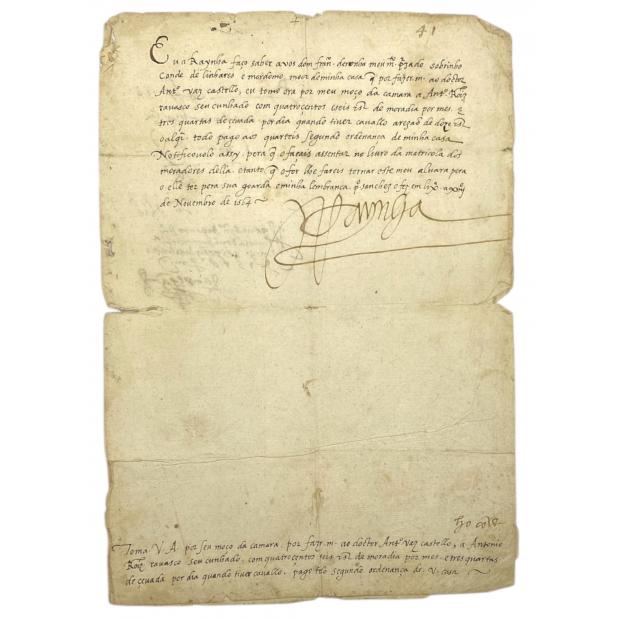 41
Eu a Raynha faço saber a vos dom fran.co de noronha meu m.to p̃zado sobrinho
Conde de linhares e mordomo mor de minha casa q̃ por fazer m. ao doctor
Ant.o vaz castello, eu tomo ora por meu moço da camara a Ant.o Roĩz
tavasco seu cunhado com quatroçentos e seis rs de moradia por mes. e
tres quartas de çevada por dia quando tiver cavallo a rezão de doze rs
o alq.re todo pago aos quarteis segundo ordenança de minha casa
Notificovolo assy, pera q̃ o façais assentar no livro da matricola dos
moradores della. o tanto, q̃ o for lhe fareis tornar este meu alvara pera
o elle ter pera sua goarda e minha lembrança. p.o sanches o fez em lix.a a xxiij
de Novembro de 1564
Raynha
Toma V. A. por seu moço da camara, por fazer m. ao doctor Ant.o vaz castello, a Antonio
Roĩz tavasco seu cunhado, com quatroçentos seis rs de moradia por mes. e tres quartas
de çevada por dia quando tiver cavallo, pago tdo segundo ordenança de. v. casa